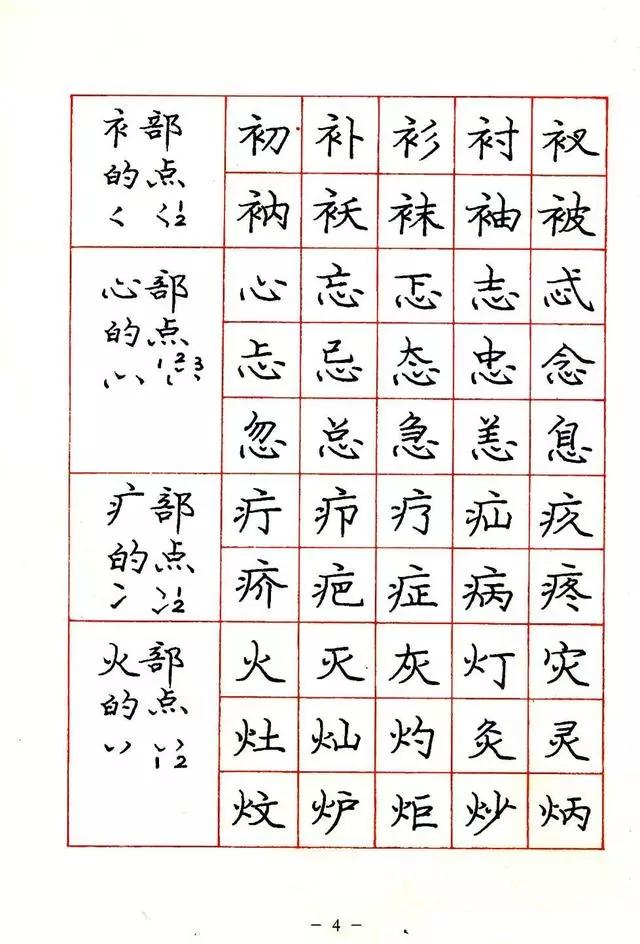 衤部
的点
1
2
初 补 衫 衬 衩
衲 袄 袜 袖 被
心部
的点
1 2 3
心 忘 忑 志 忒
忐 忌 态 忠 念
忽 总 急 恙 息
疒部
的点
1
2
疔 疖 疗 疝 疚
疥 疤 症 病 疼
火部
的点
1 2
火 灭 灰 灯 灾
灶 灿 灼 灸 灵
炆 炉 炬 炒 炳
- 4 -